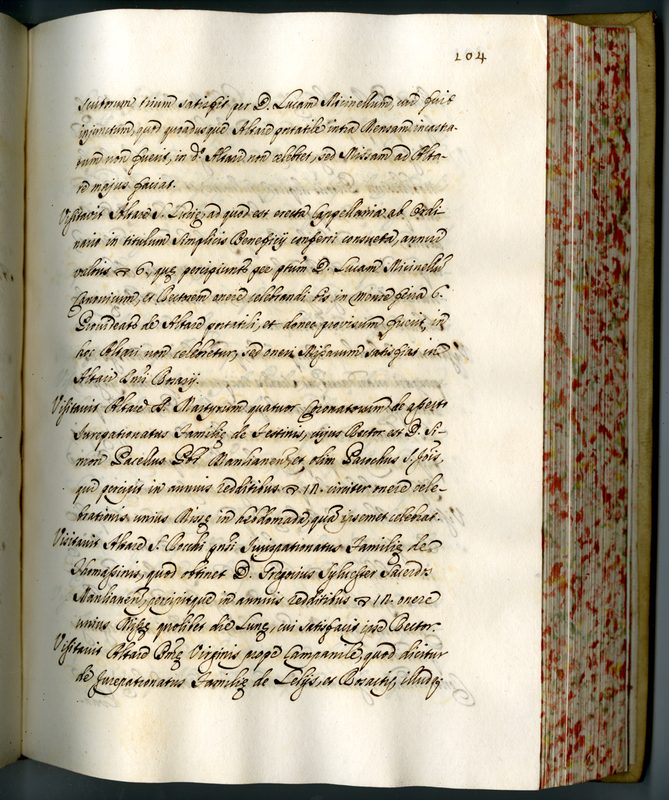 104
Scutorum trium satisfit per D. Lucam Micinellum, cui fuit
injunctum, quod quousque Altare portatile intra Mensam incastra-
tum non fuerit, in d.o Altari non celebret, sed Missam ad Alta-
re majus faciat.
Visitavit Altare S. Luciæ, ad quod est erecta Cappellania ab Ordi-
nario in titulum simplicis Beneficij conferri consueta, annui
reditus 6, quæ percipiuntur per D. Lucam Micinellum
Canonicum, et Rectorem onere celebrandi bis in Mense feria 6.
Provideatur de Altari portatili, et donec provisum fuerit, in
hoc Altari non celebretur, sed oneri Missarum satisfiat in
Altari
Visitavit Altare SS. Martyrum quatuor Coronatorum, de
Jurepatronatus Familiæ de Festinis, cujus Rector est D. Si-
mon Pacellus Manlianen, et olim Parochus S. Jois,
qui percipit in annuis redditibus 12 circiter onere cele-
brationis unius Missæ in hebdomada, quam ipsemet celebrat.
Visitavit Altare S. Rocchi Jurispatronatus Familiæ de
Thomassinis, quod obtinet D. Gregorius Sylvester Sacerdos
Manlianen, percipitque in annuis redditibus 12 onere
unius Missæ quolibet die Lunæ, cui satisfacit ipse Rector.
Visitavit Altare Bmæ Virginis prope Campanile, quod dicitur
de Jurepatronatus Familiæ de Lelijs, et